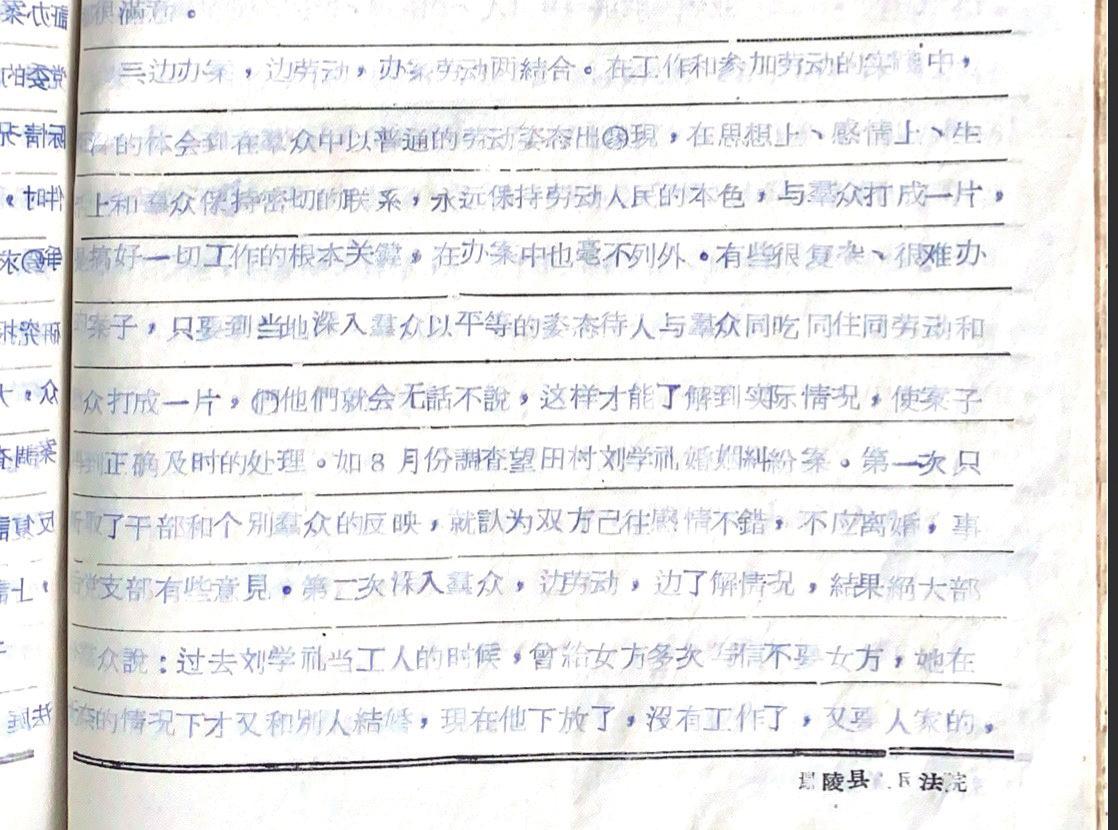 很滿意。
三边办案，边劳动，办案劳动两結合。在工作和参加劳动的实踐中，
的体会到在羣众中以普通的劳动姿态出現，在思想上、感情上、生
上和羣众保持密切的联系，永远保持劳动人民的本色，与羣众打成一片，
是搞好一切工作的根本关鍵，在办案中也毫不列外。有些很复杂、很难办
的案子，只要到当地深入羣众以平等的姿态待人与羣众同吃同住同劳动和
众打成一片，他們就会无話不說，这样才能了解到实际情况，使案子
得到正确及时的处理。如8月份調查望田村刘学礼婚姻糾紛案。第一次只
听取了干部和个別羣众的反映，就認为双方已往感情不錯，不应离婚，事
后党支部有些意見。第二次深入羣众，边劳动，边了解情况，結果絕大部
羣众說：过去刘学礼当工人的时候，曾給女方多次写信不要女方，她在
的情况下才又和別人結婚，現在他下放了，沒有工作了，又要人家的，
陵县 民法院
証办案
党委的
际情况
件时，
求
研究
众，大
案調查
反复
，上